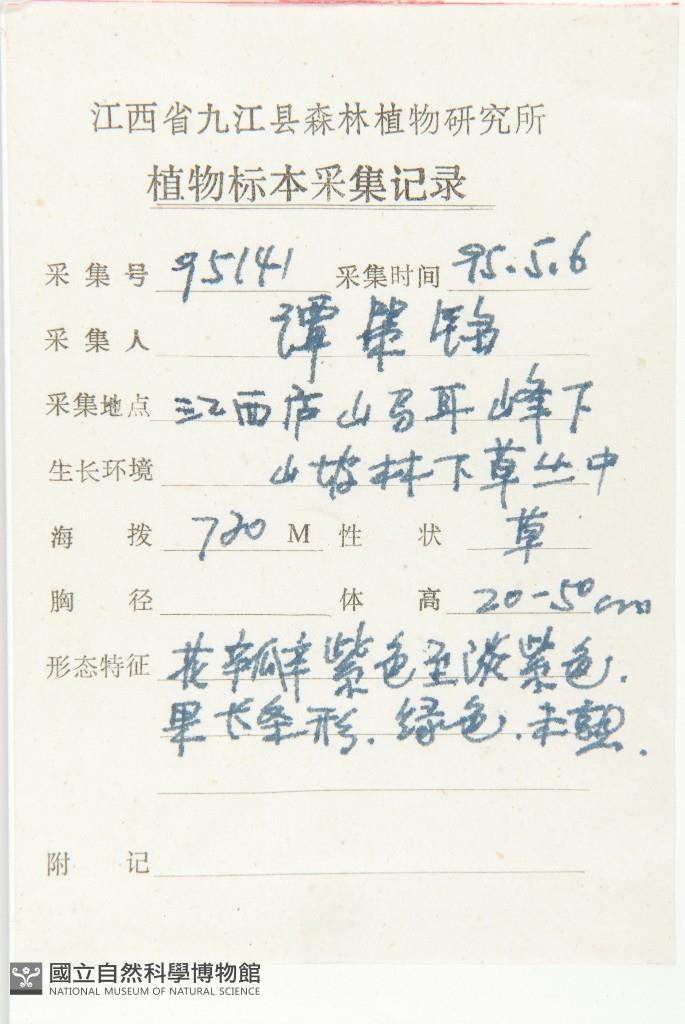 江西省九江县森林植物研究所
植物标本采集记录
采集号 95141 采集时间 95.5.6
采集人 谭策铭
采集地点 江西庐山马耳峰下
生长环境 山坡林下草丛中
海拨 720 M 性状 草
胸径 体高 20-50cm
形态特征 花瓣紫色至淡紫色.
果长条形.绿色.未熟.
附记
國立自然科學博物館
NATIONAL MUSEUM OF NATURAL SCIENCE